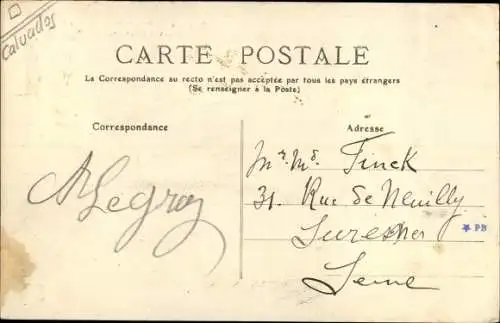 Calvados
CARTE POSTALE
La Correspondance au recto n'est pas acceptée par tous les pays étrangers
(Se renseigner à la Poste)
Correspondance
Adresse
Mr. Md. Finck
31. Rue de Neuilly
Suresnes
Seine
Legroz
PB